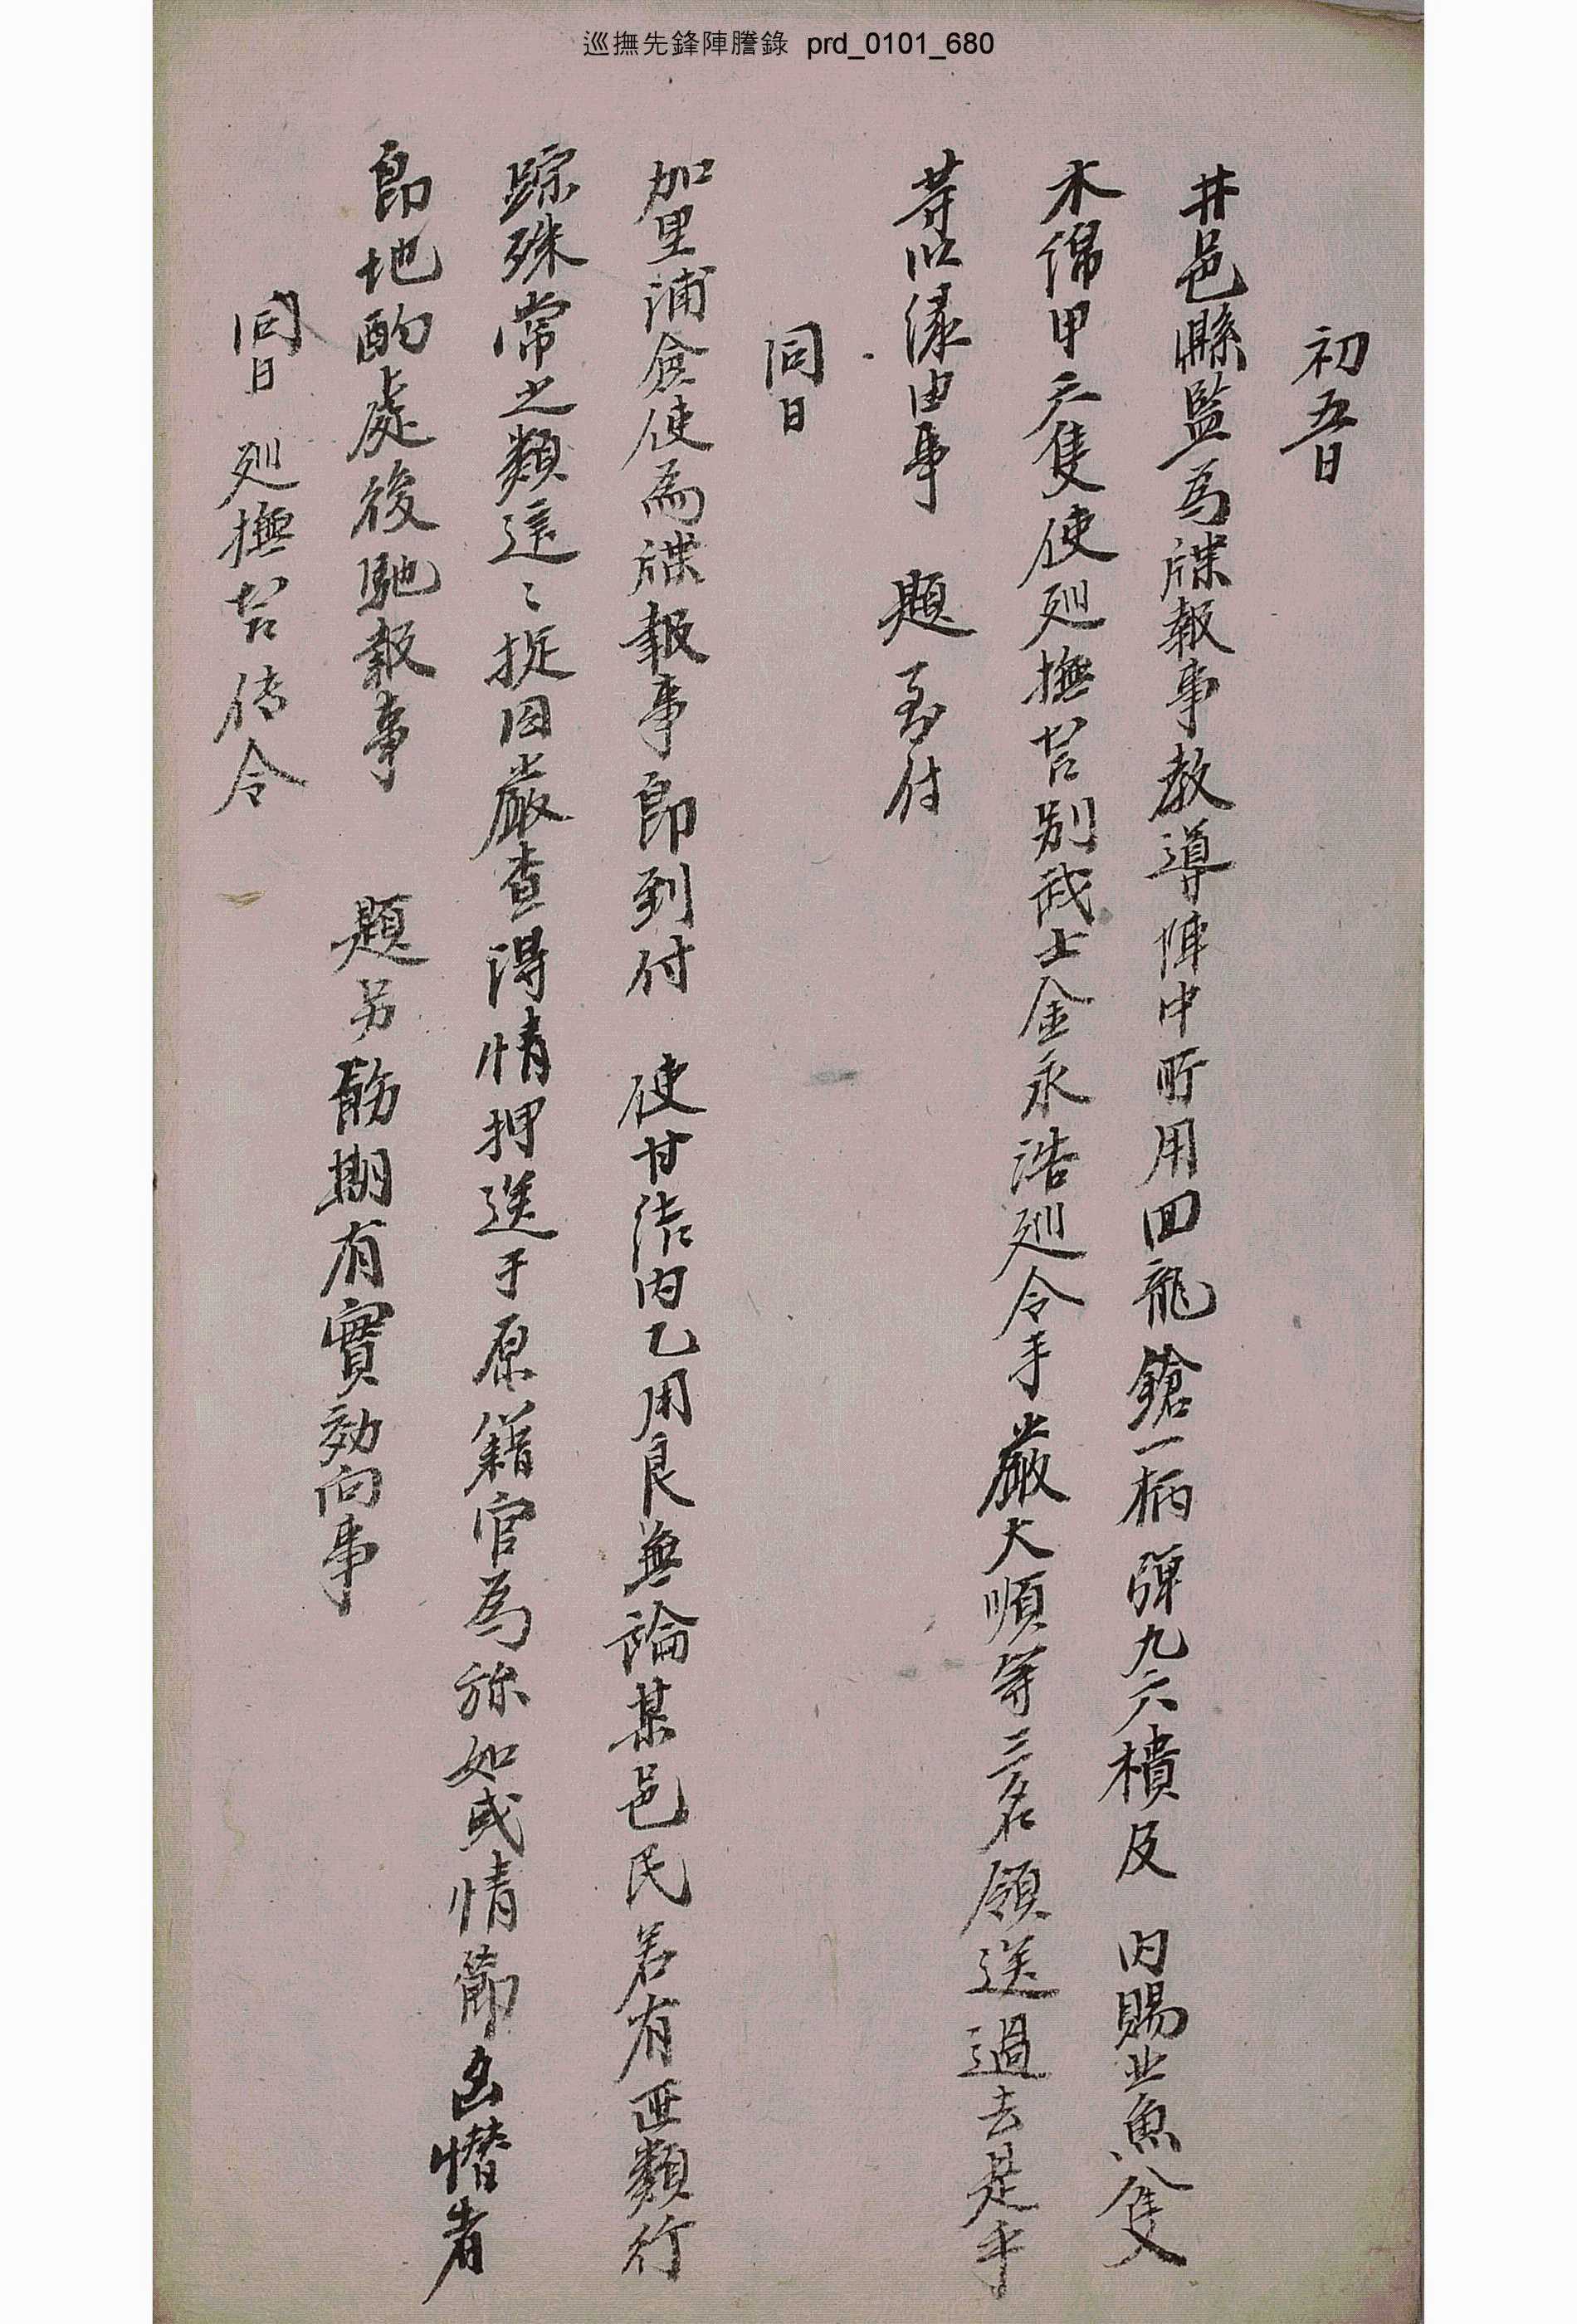 巡撫先鋒陣謄錄 prd_0101_680
初五日
井邑縣監為牒報事敎導陣中所用回龍鎗一柄彈丸六樻及 內賜 魚 隻
木綿甲 隻使巡撫營別武士金永浩巡令手嚴大順等三名領送過去是乎
等以緣由事 題到付
同日
加里浦僉使為牒報事卽到付 使甘結內乙用良無論某邑民若有匪類行
踪殊常之類這〻捉囚嚴查得情押送于原籍官為旀如或情節凶憯者
卽地酌處後馳報事 題另飭期有實效向事
同日 巡撫營傳令